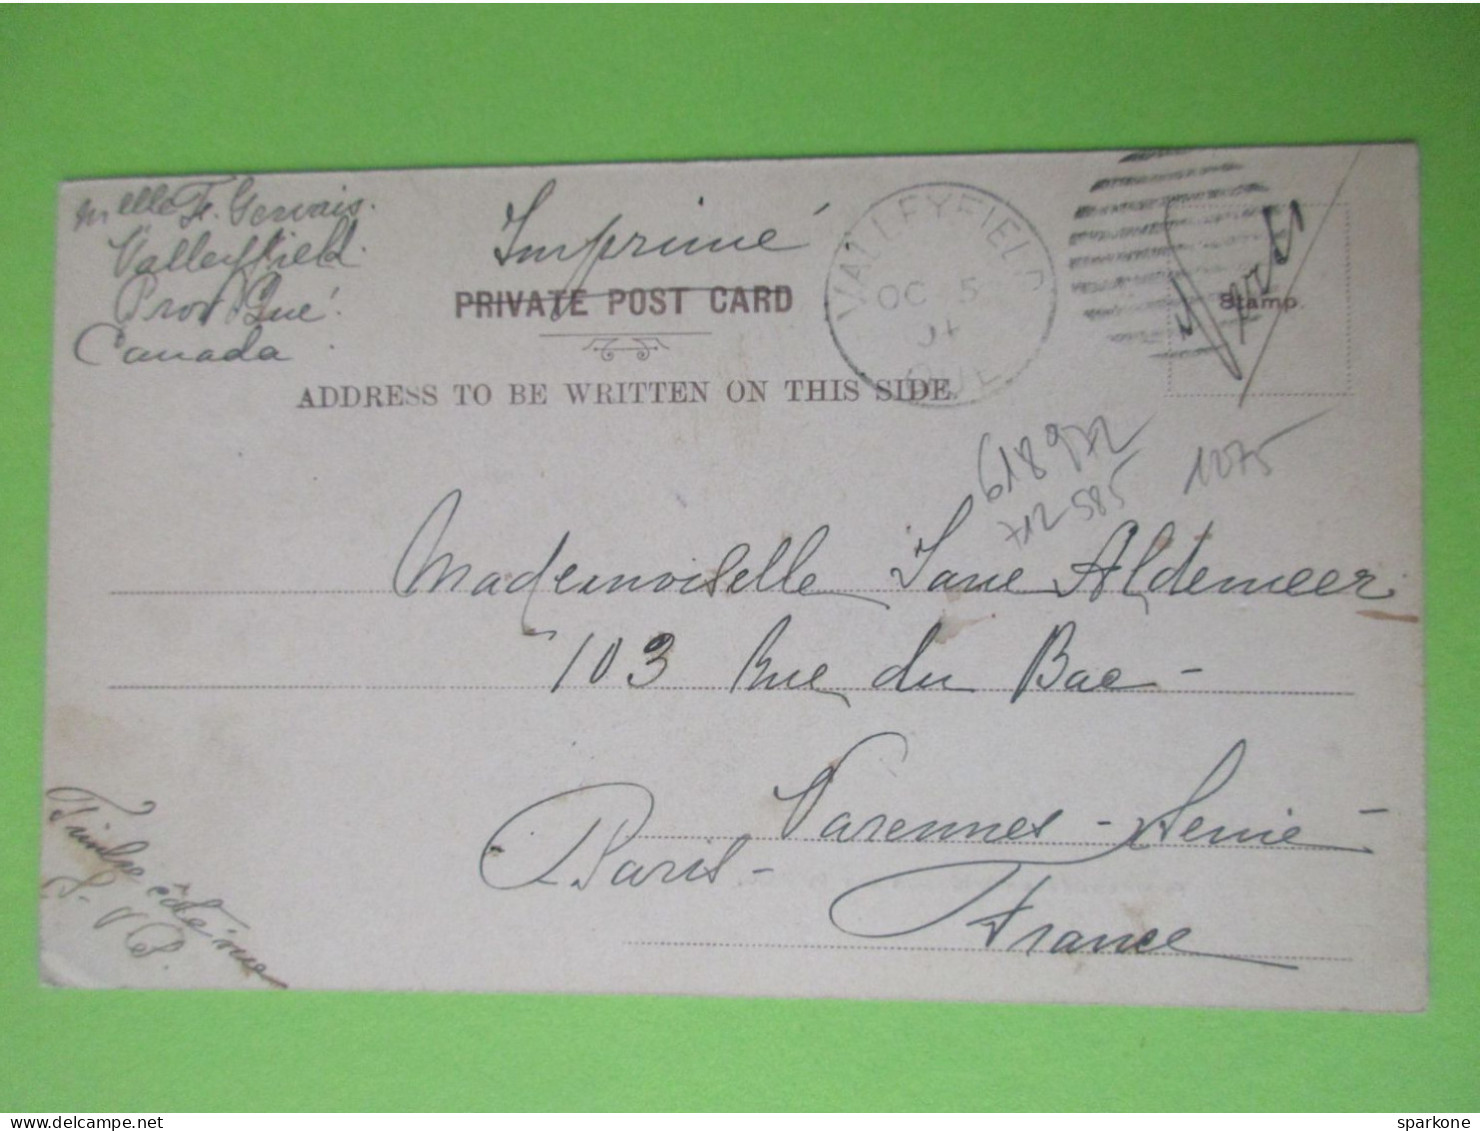 Melle F. Gervais.
Valleyfield.
Prov. Qué.
Canada
Imprimé
PRIVATE POST CARD
ADDRESS TO BE WRITTEN ON THIS SIDE.
VALLEYFIELD
OC 5
01
QUE
Stamp.
618972
712585
1075
Mademoiselle Jane Aldemeer.
103 Rue du Bac -
Varennes - Semié -
Paris -
France
Timbre côté vue
S. V. P.
sparkone